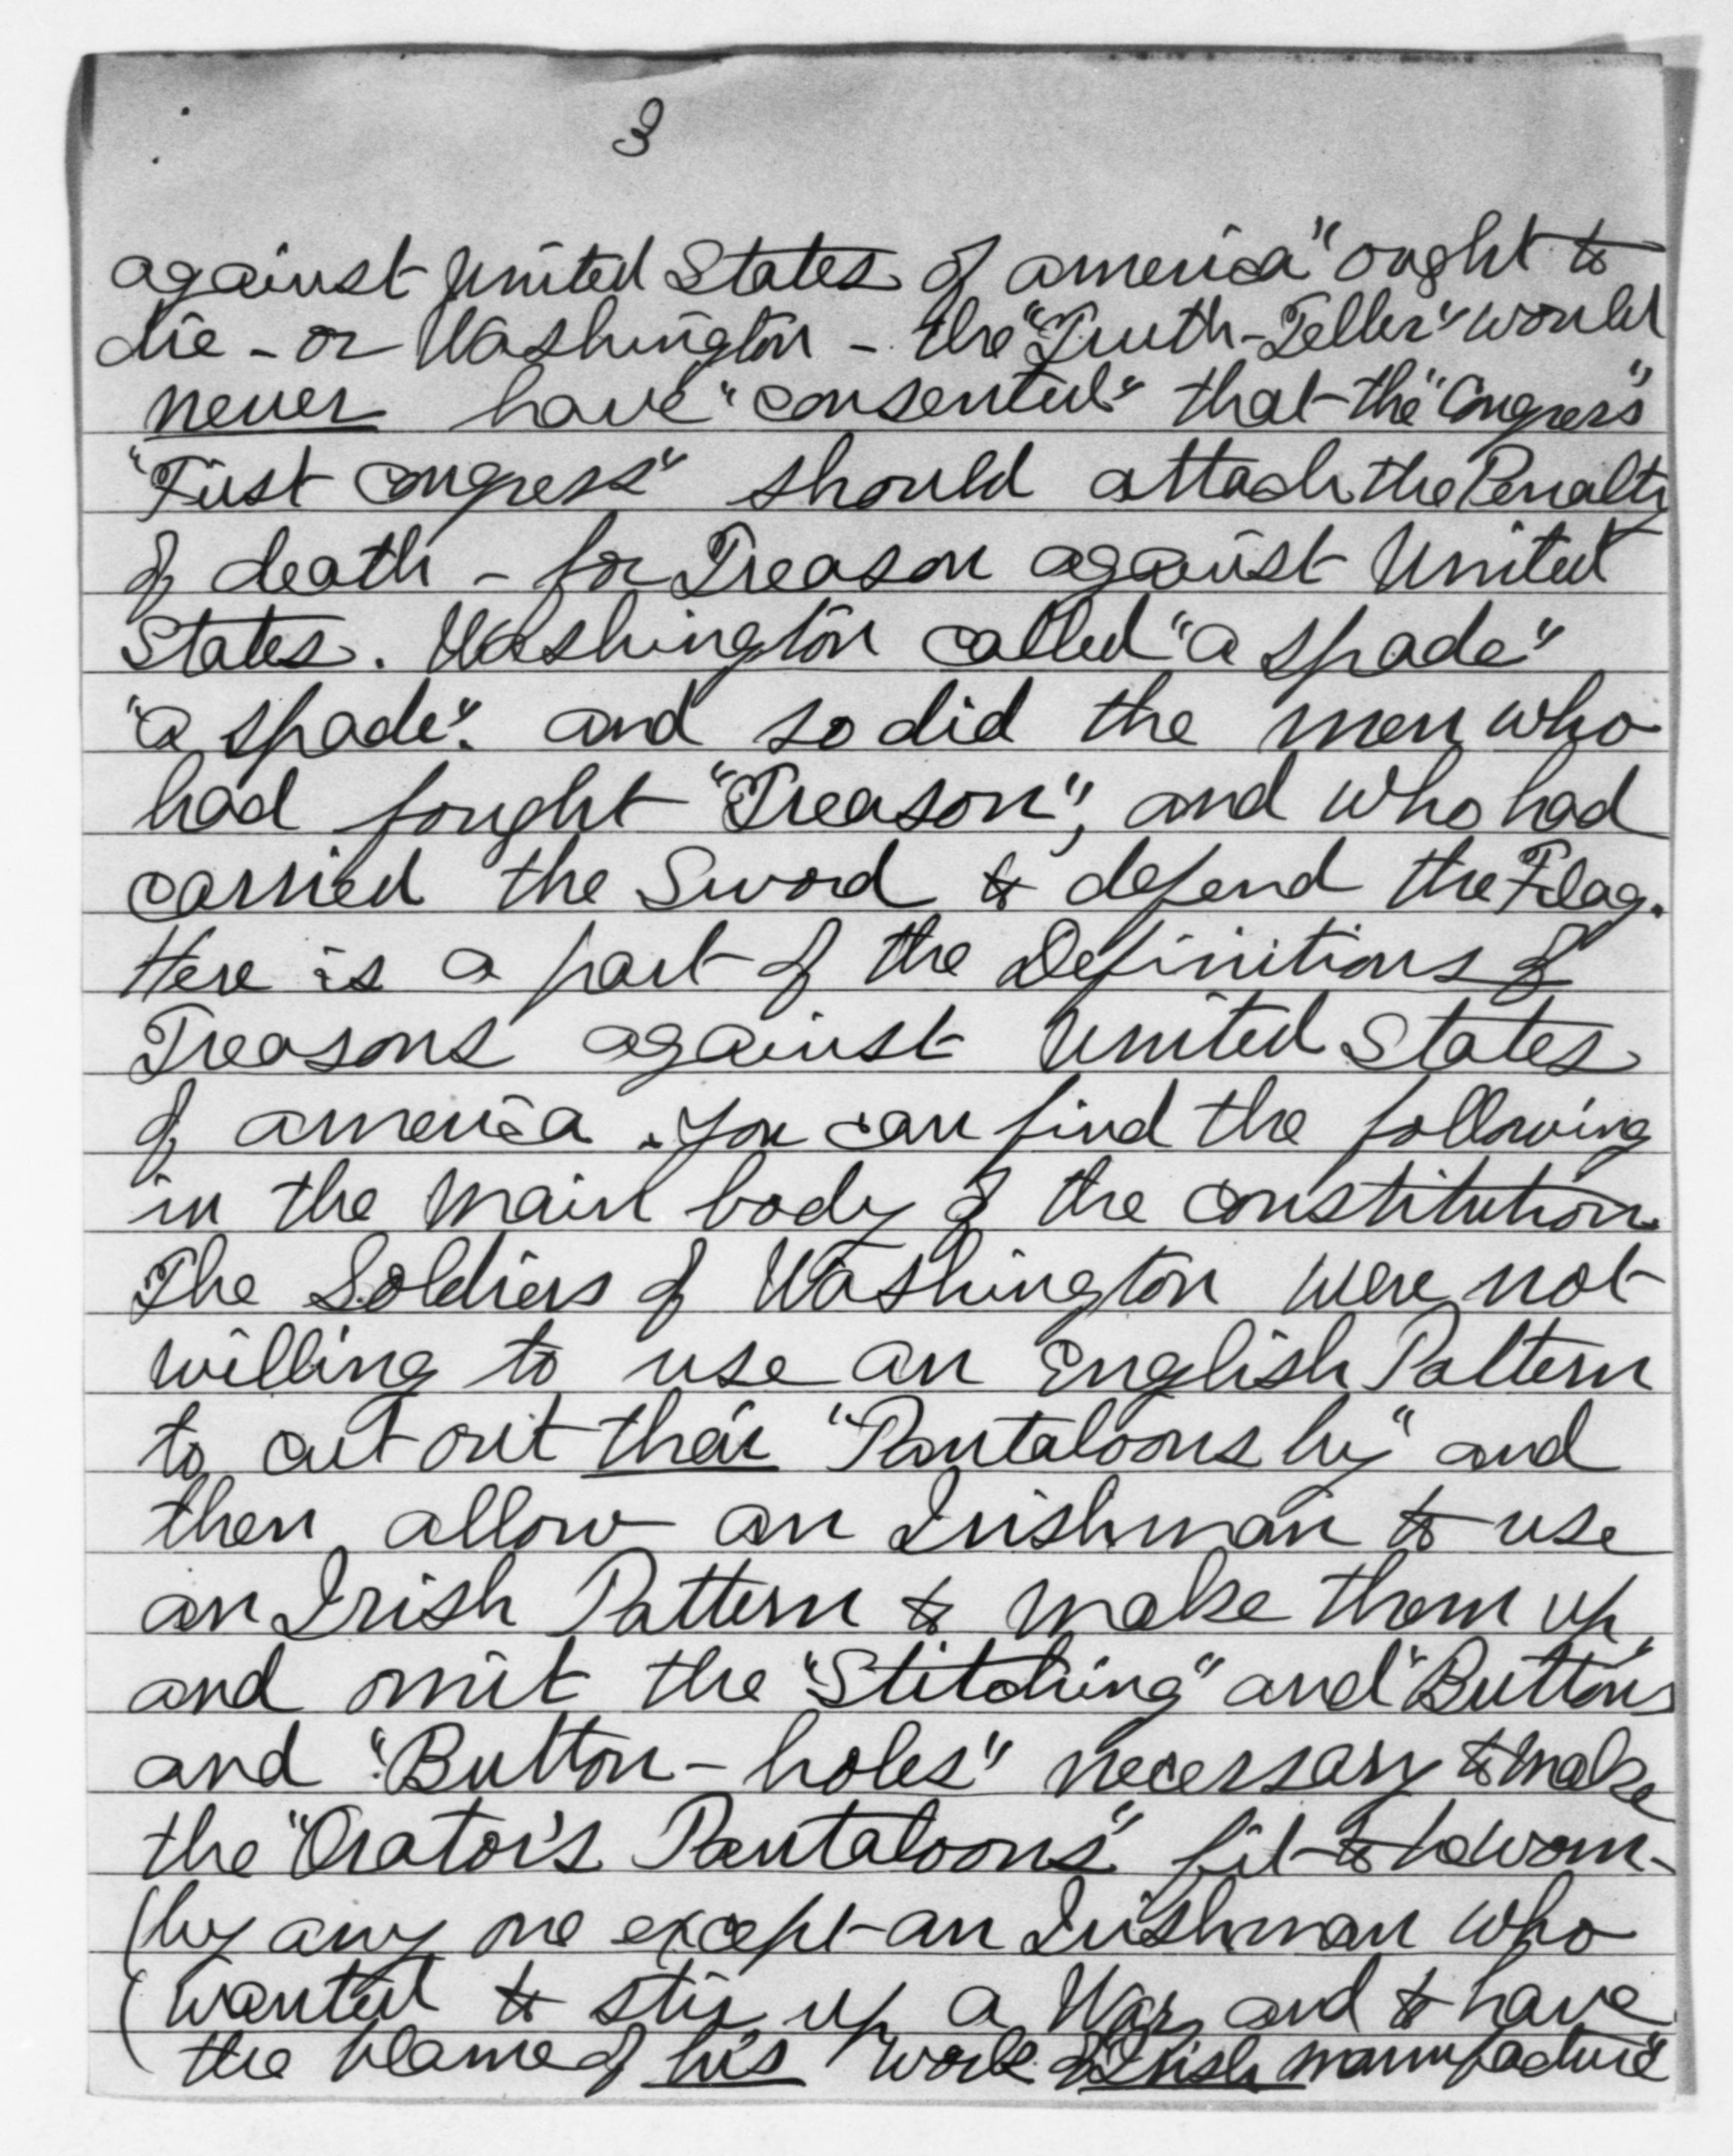 3
against United States of america" ought to
die - or Washington - the "Truth-Teller" would
never have "consented" that the "Congress"
"First congress" should attach the Penalty
of death - for Treason against United
States. Washington called "a spade"
"a spade". and so did the men who
had fought "Treason", and who had
carried the Sword to defend the Flag.
Here is a part of the Definitions of
Treasons against United States
of america. You can find the following
in the main body of the constitution.
The Soldiers of Washington were not
willing to use an English Pattern
to cut out their "Pantaloons by" and
then allow an Irishman to use
an Irish Pattern to make them up,
and omit the "Stitching" and "Buttons
and "Button-holes" necessary to make
the "Orator's Pantaloons" fit to be worn-
(by any one except an Irishman who
(wanted to stir up a War, and to have
the blame of his work of Irish manufacture